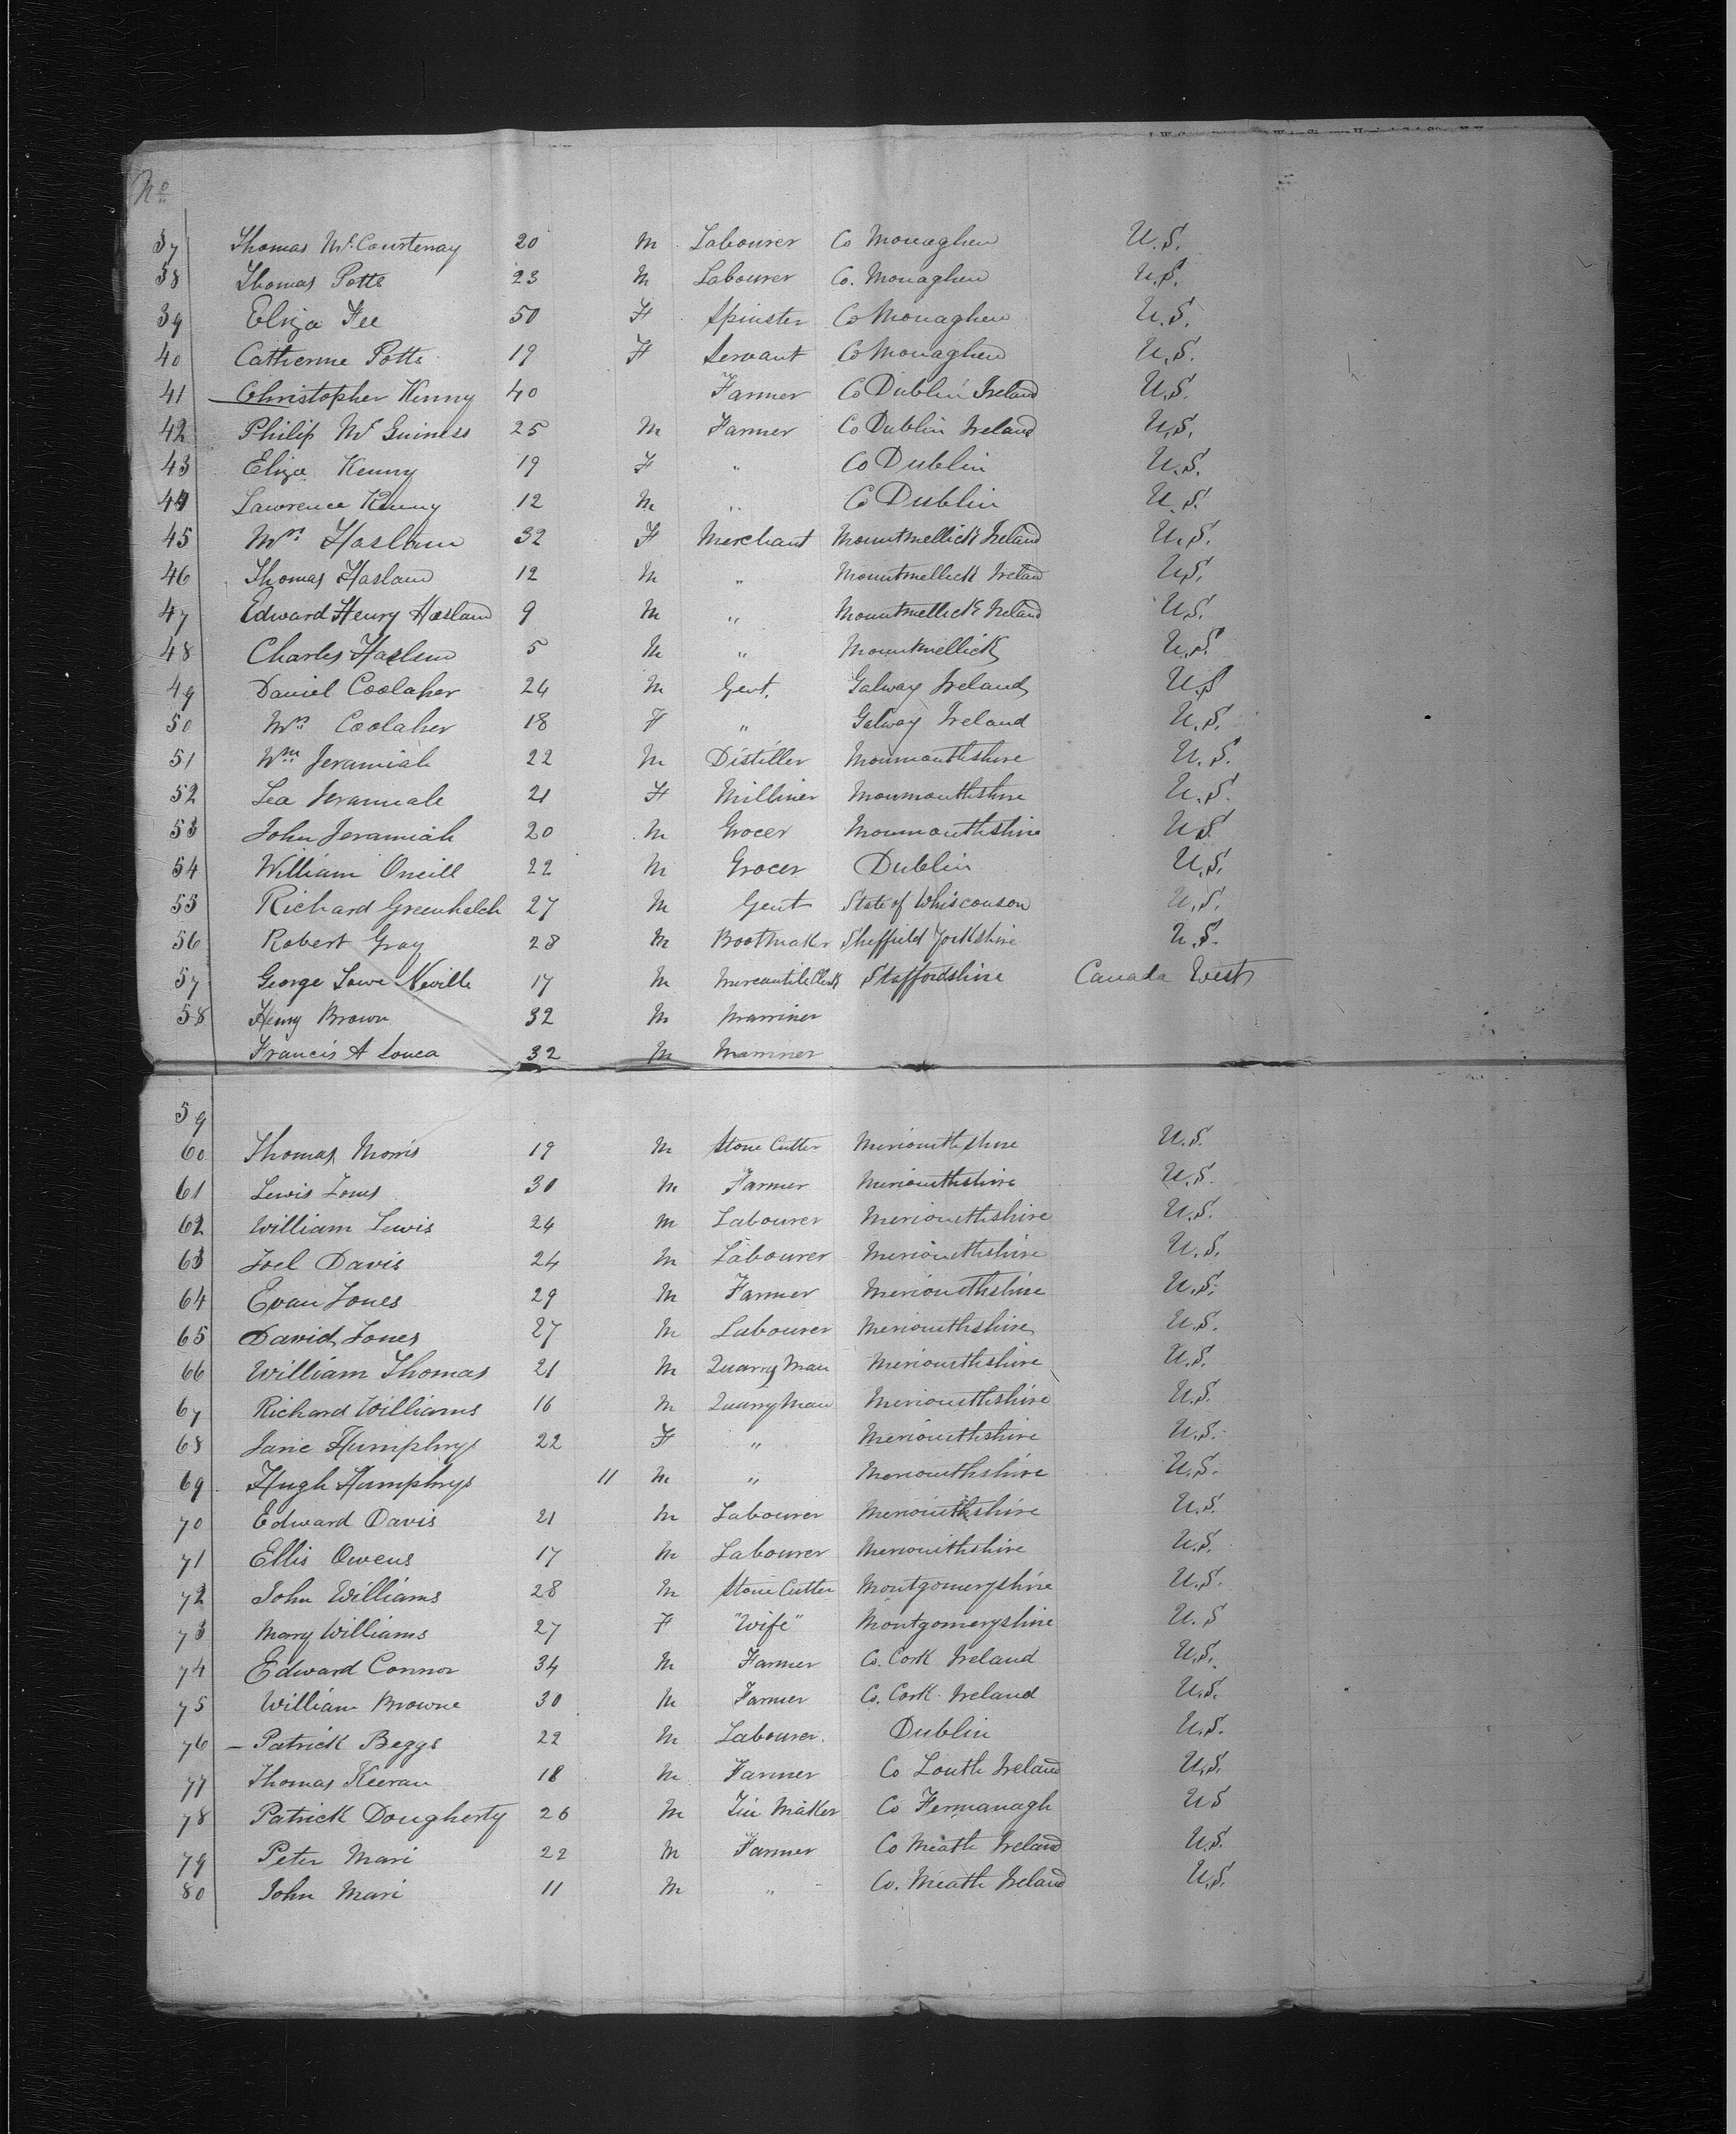 No
37 Thomas Mc Courtenay 20 M Labourer Co Monaghen U.S.
38 Thomas Potts 23 M Labourer Co. Monaghen U.S.
39 Eliza Fee 50 F Spinster Co Monaghen U.S.
40 Catherine Potts 19 F Servant Co Monaghen U.S.
41 Christopher Kenny 40 Farmer Co Dublin Ireland U.S.
42 Philip Mc Guiness 25 M Farmer Co Dublin Ireland U.S.
43 Eliza Kenny 19 F " Co Dublin U.S.
44 Lawrence Kenny 12 M " Co Dublin U.S.
45 Mrs Haslam 32 F Merchant Mountmellick Ireland U.S.
46 Thomas Haslam 12 M " Mountmellick Ireland U.S.
47 Edward Henry Haslam 9 M " Mountmellick Ireland U.S.
48 Charles Haslam 5 M " Mountmellick U.S.
49 Daniel Coolaher 24 M Gent. Galway Ireland U.S
50 Mrs Coolaher 18 F " Galway Ireland U.S.
51 Wm Jeramiah 22 M Distiller Monmouthshire U.S.
52 Lea Jeramiah 21 F Milliner Monmouthshire U.S.
53 John Jeramiah 20 M Grocer Monmouthshire U.S.
54 William Oneill 22 M Grocer Dublin U.S.
55 Richard Greenhalch 27 M Gent State of Whisconson U.S.
56 Robert Gray 28 M Bootmaker Sheffield Yorkshire U.S.
57 George Lowe Neville 17 M Mercantile Clerk Staffordshire Canada West
58 Henry Brown 32 M Marriner
Francis A 32 M Marriner
59
60 Thomas Morris 19 M Stone Cutter Merionithshire U.S.
61 Lewis Jones 30 M Farmer Merionithshire U.S.
62 William Lewis 24 M Labourer Merionithshire U.S.
63 Joel Davis 24 M Labourer Merionithshire U.S.
64 Evan Jones 29 M Farmer Merionithshire U.S.
65 David Jones 27 M Labourer Merionithshire U.S.
66 William Thomas 21 M Quarry Man Merionithshire U.S.
67 Richard Williams 16 M Quarry Man Merionithshire U.S.
68 Jane Humphrys 22 F " Merionithshire U.S.
69 Hugh Humphrys 11 M " Merionithshire U.S.
70 Edward Davis 21 M Labourer Merionithshire U.S.
71 Ellis Owens 17 M Labourer Merionithshire U.S.
72 John Williams 28 M Stone Cutter Montgomeryshire U.S.
73 Mary Williams 27 F "Wife" Montgomeryshire U.S
74 Edward Connor 34 M Farmer Co. Cork Ireland U.S.
75 William Browne 30 M Farmer Co. Cork Ireland U.S.
76 – Patrick Beggs 22 M Labourer. Dublin U.S.
77 Thomas Keeran 18 M Farmer Co Louth Ireland U.S.
78 Patrick Dougherty 26 M Tin Maker Co Fermanagh U S
79 Peter Mari 22 M Farmer Co Meath Ireland U.S.
80 John Mari 11 M " Co. Meath Ireland U.S.